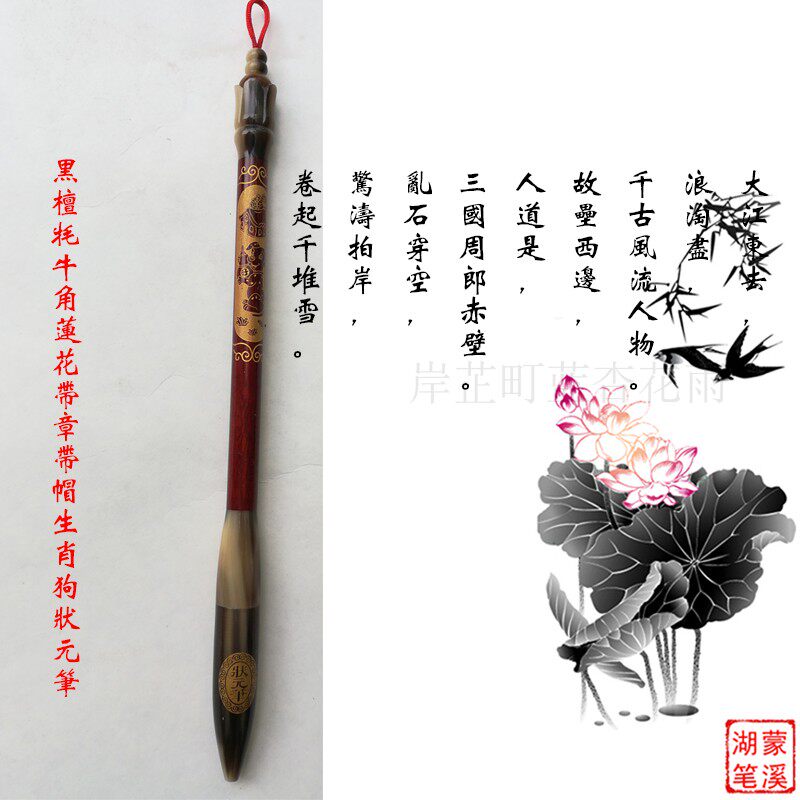 大江東去，
浪淘盡，
千古風流人物。
故壘西邊，
人道是，
三國周郎赤壁。
亂石穿空，
驚濤拍岸，
卷起千堆雪。
黑檀牦牛角蓮花帶章帶帽生肖狗狀元筆
岸芷町蓝杏花雨
狀元筆
蒙溪
湖笔